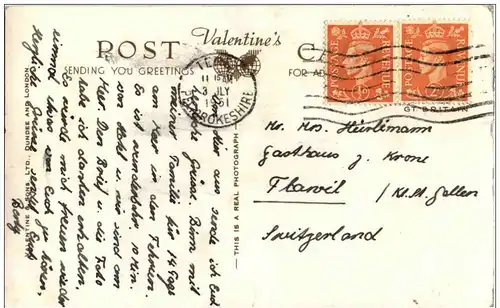 POST
Valentine's
CA
SENDING YOU GREETINGS
FOR AD
GT. BRITAIN
TE
11 15 AM
3 JLY
1951
PEMBROKESHIRE
POSTAGE
REVENUE
POSTAGE
REVENUE
VALENTINE & SONS, LTD., DUNDEE AND LONDON
THIS IS A REAL PHOTOGRAPH
Von hier aus sende ich Euch
liebe Grüsse. Bin mit
meiner Familie für 14 Tage
am Meer in den Ferien.
Es ist wunderbar. 10 Min.
vom Hotel u. wir sind am
Meer. Den Brief u. die Foto
habe ich dankend erhalten.
Es würde mich freuen wieder
einmal etwas von Euch zu hören.
Herzliche Grüsse sendet Euch
Mr. Mrs. Hürlimann
Gasthaus z. Krone
Flawil / Kt. St. Gallen
Switzerland